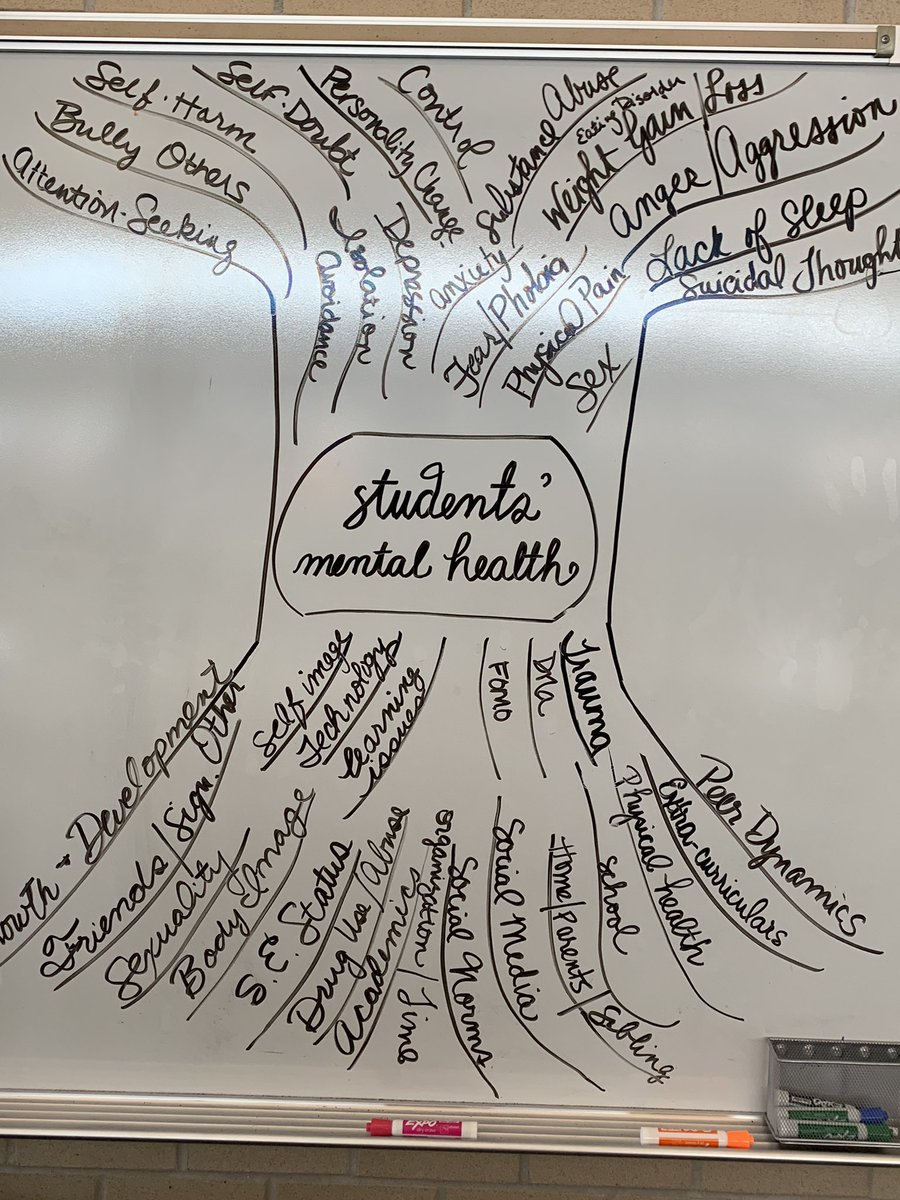 Self-Harm
Bully Others
Attention-Seeking
Self-Doubt
Personality Change
Control
Substance Abuse
Eating Disorder
Weight Gain/Loss
Anger/Aggression
Lack of Sleep
Suicidal Thought
Avoidance
Isolation
Depression
anxiety
Fear/Phobia
Physical Pain
Sex
students'
mental health
Self image
Technology
learning
issues
FOMO
DNA
Trauma
owth + Development
Friends/Sign. Other
Sexuality
Body Image
S.E. Status
Drug Use/Abuse
Academics
organization/Time
Social Norms
Social Media
Home/Parents/Sibling
school
Physical health
Extra-curriculars
Peer Dynamics
EXPO